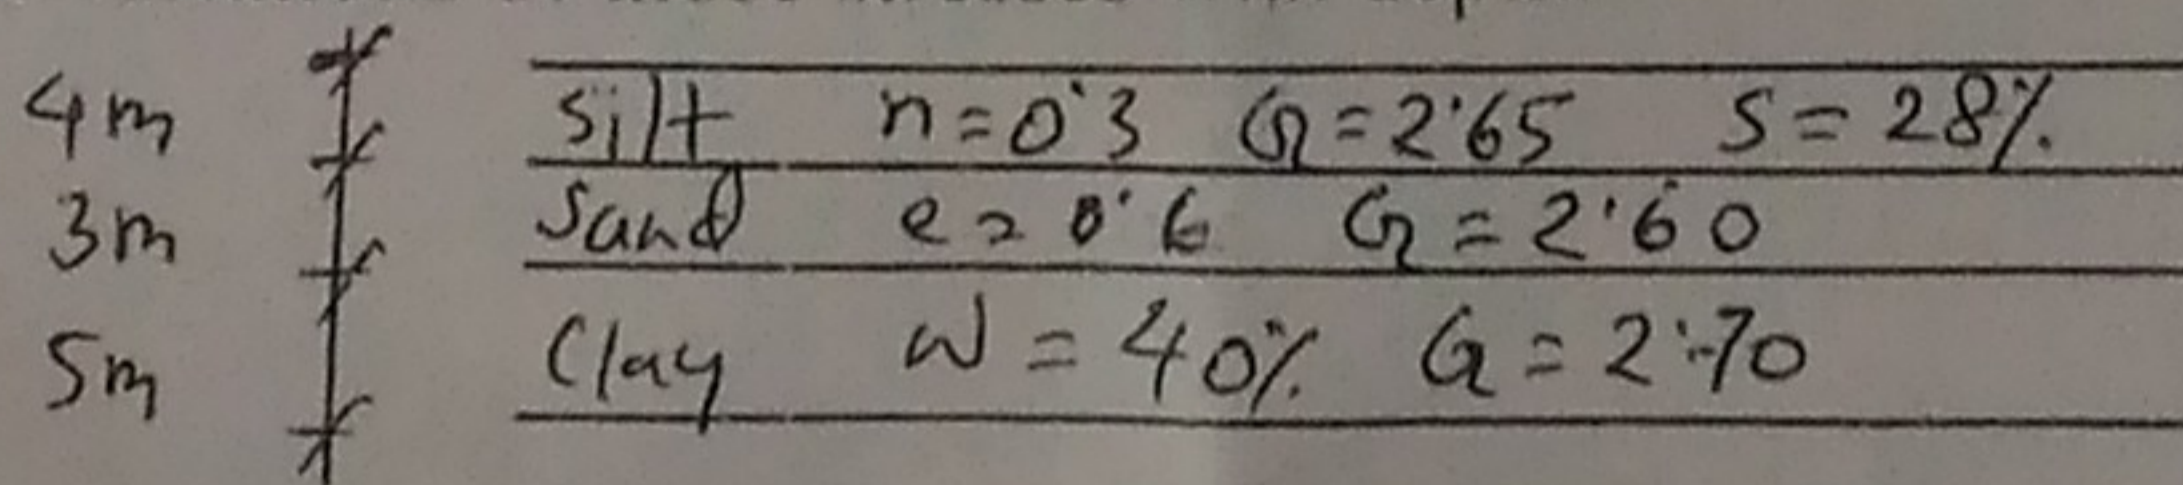 4m Silt n=0.3 G=2.65 S=28%.
3m Sand e=0.6 G=2.60
5m Clay W=40% G=2.70